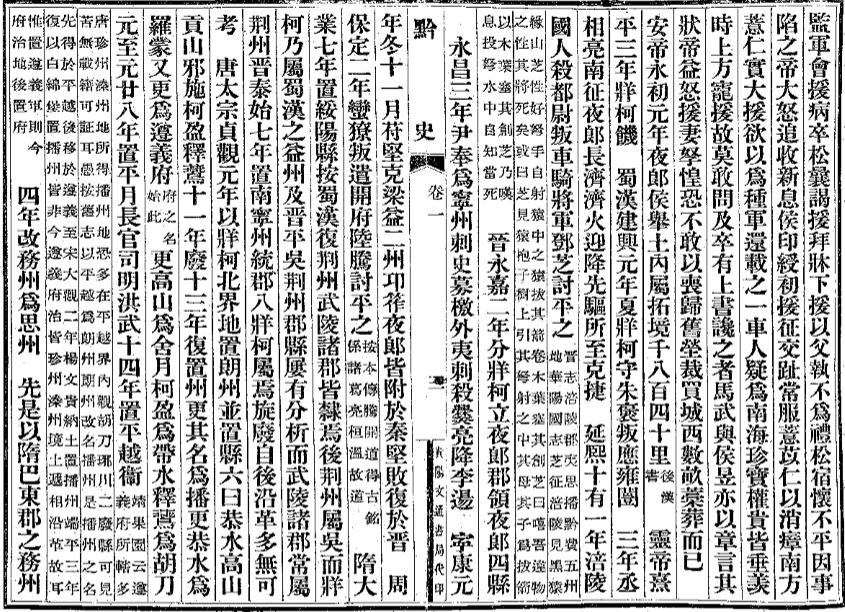 監軍會援病卒松嘗謁援拜牀下援以父執不爲禮松宿懷不平因事
陷之帝大怒追收新息侯印綬初援征交趾常服薏苡仁以消瘴南方
薏仁實大援欲以爲種軍還載之一車人疑爲南海珍寶權貴皆垂羨
時上方寵援故莫敢問及卒有上書譖之者馬武與侯昱亦以章言其
狀帝益怒援妻孥惶恐不敢以喪歸舊塋裁買城西數畝槀葬而已
安帝永初元年夜郎侯舉土內屬拓境千八百四十里 後漢書 靈帝熹
平三年牂柯饑 蜀漢建興元年夏牂柯守朱褒叛應雍闓 三年丞
相亮南征夜郎長濟濟火迎降先驅所至克捷 延熙十有一年涪陵
國人殺都尉叛車騎將軍鄧芝討平之 晉志涪陵郡
地華陽國志芝征涪陵見黑猿
緣山芝性好弩手自射猿中之猿拔其箭卷木葉塞其創芝曰嘻吾違物
之性其將死矣或曰芝見猿抱子樹上引其弩射之中其母其子爲拔箭
以木葉塞其創芝乃嘆
息投弩水中自知當死
晉永嘉二年分牂柯立夜郎郡領夜郎四縣
永昌三年尹奉爲寧州刺史募檄外夷刺殺爨亮降李逷 寧康元
黔史 卷一
貴陽文通書局代印
年冬十一月苻堅克梁益二州邛筰夜郎皆附於秦堅敗復於晉 周
保定二年蠻獠叛遣開府陸騰討平之 按本傳騰開道得古銘
係諸葛亮桓溫故道 隋大
業七年置綏陽縣按蜀漢復荆州武陵諸郡皆隸焉後荆州屬吳而牂
柯乃屬蜀漢之益州及晉平吳荆州郡縣屢有分析而武陵諸郡常屬
荆州晉泰始七年置南寧州統郡八牂柯屬焉旋廢自後沿革多無可
考 唐太宗貞觀元年以牂柯北界地置朗州並置縣六曰恭水高山
貢山邪施柯盈釋鷰十一年廢十三年復置州更其名爲播更恭水爲
羅蒙又更爲遵義府 府之名
始此 更高山爲舍月柯盈爲帶水釋鷰爲胡刀
元至元廿八年置平月長官司明洪武十四年置平越衞 靖果園云遵
義府所轄多
唐珍州溱州地所得播州地恐多在平越界內觀胡刀瑯川二廢縣可見
苦無載籍可証耳愚按舊志以平越爲朗州朗州改名播州是播州之名
先得於平越後移於遵義至宋大觀二年楊文貴納土置播州端平三年
復以白綿堡置播州皆非今遵義府治皆珍州溱州境土遞相沿革故耳
惟置遵義軍則今
府治地後置府
四年改務州爲思州 先是以隋巴東郡之務州